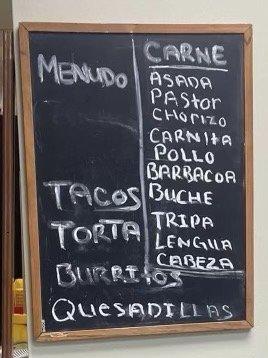 MENUDO
TACOS
TORTA
BURRITOS
QUESADILLAS
CARNE
ASADA
PASTOR
CHORIZO
CARNITA
POLLO
BARBACOA
BUCHE
TRIPA
LENGUA
CABEZA